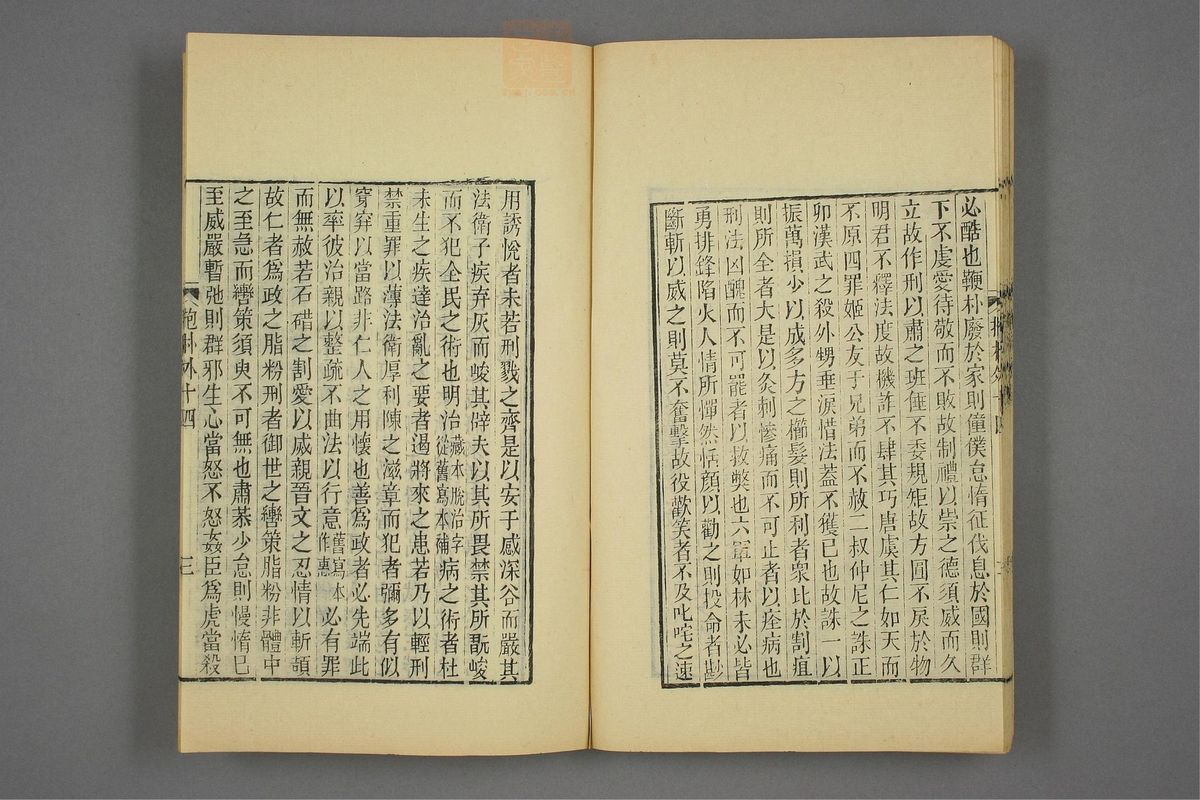 必酷也鞭朴廢於家則僮僕怠惰征伐息於國則群
下不虔愛待敬而不敗故制禮以崇之德須威而久
立故作刑以肅之班倕不委規矩故方圓不戾於物
明君不釋法度故機詐不肆其巧唐虞其仁如天而
不原四罪姬公友于兄弟而不赦二叔仲尼之誅正
卯漢武之殺外甥垂淚惜法蓋不獲已也故誅一以
振萬損少以成多方之櫛髮則所利者眾比於割疽
則所全者大是以灸刺慘痛而不可止者以痊病也
刑法凶醜而不可罷者以救弊也六軍如林未必皆
勇排鋒陷火人情所憚然恬顏以勸之則投命者尠
斷斬以威之則莫不奮擊故役歡笑者不及叱咤之速
用誘悅者未若刑戮之齊是以安于感深谷而嚴其
法衛子疾弃灰而峻其辟夫以其所畏禁其所翫峻
而不犯全民之術也明治藏本脫治字從舊寫本補病之術者杜
未生之疾達治亂之要者遏將來之患若乃以輕刑
禁重罪以薄法衛厚利陳之滋章而犯者彌多有似
穿穽以當路非仁人之用懷也善為政者必先端此
以率彼治親以整疏不曲法以行意舊寫本作惠必有罪
而無赦若石碏之割愛以威親晉文之忍情以斬頡
故仁者為政之脂粉刑者御世之轡策脂粉非體中
之至急而轡策須臾不可無也肅恭少怠則慢惰已
至威嚴暫弛則群邪生心當怒不怒姦臣為虎當殺
抱朴外十四
三